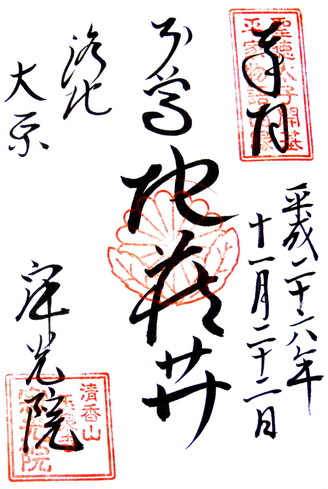 奉拝
聖徳太子開基
平家物語
平成二十六年
十一月二十二日
本尊
地蔵井
洛北
大原
寂光院
清香山
寂光院